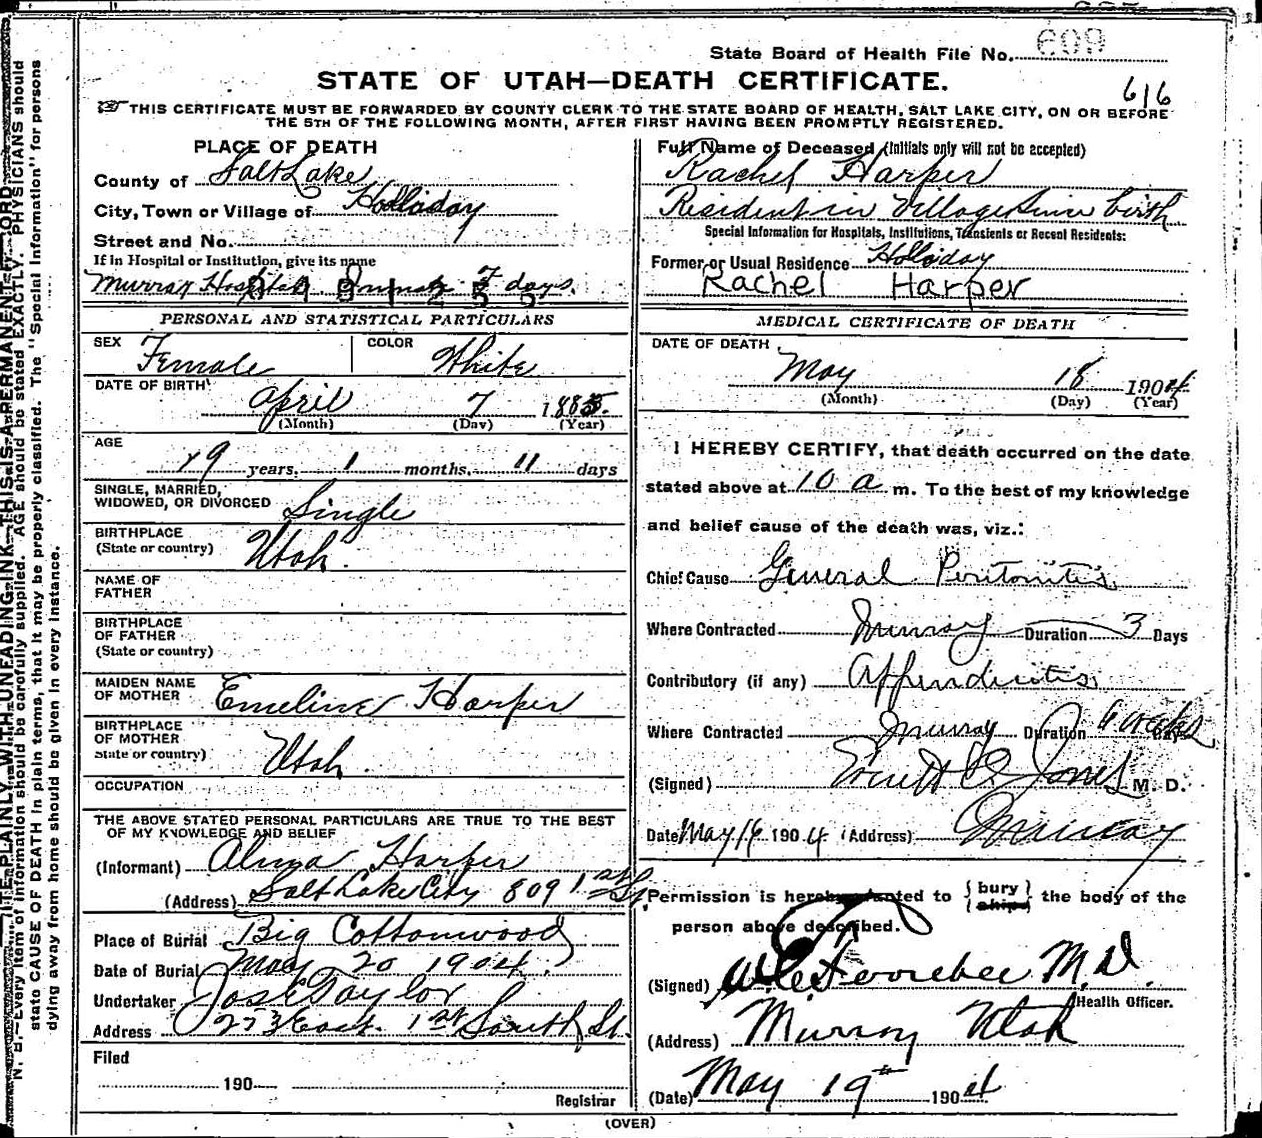 State Board of Health File No. 609
STATE OF UTAH—DEATH CERTIFICATE.
616
THIS CERTIFICATE MUST BE FORWARDED BY COUNTY CLERK TO THE STATE BOARD OF HEALTH, SALT LAKE CITY, ON OR BEFORE
THE 5TH OF THE FOLLOWING MONTH, AFTER FIRST HAVING BEEN PROMPTLY REGISTERED.
PLACE OF DEATH
County of Salt Lake
City, Town or Village of Holladay
Street and No.
If in Hospital or Institution, give its name
Murray Hospital Inmate 7 days.
PERSONAL AND STATISTICAL PARTICULARS
SEX Female COLOR White
DATE OF BIRTH April 7 1885.
(Month) (Day) (Year)
AGE
19 years, 1 months, 11 days
SINGLE, MARRIED,
WIDOWED, OR DIVORCED Single
BIRTHPLACE
(State or country) Utah.
NAME OF
FATHER
BIRTHPLACE
OF FATHER
(State or country)
MAIDEN NAME
OF MOTHER Emeline Harper
BIRTHPLACE
OF MOTHER
State or country) Utah.
OCCUPATION
THE ABOVE STATED PERSONAL PARTICULARS ARE TRUE TO THE BEST
OF MY KNOWLEDGE AND BELIEF
(Informant) Alma Harper
(Address) Salt Lake City 809 1st St.
Place of Burial Big Cottonwood
Date of Burial May 20 1904.
Undertaker Jos E Taylor
Address 273 East 1st South St.
Filed
190
Registrar
Full Name of Deceased (Initials only will not be accepted)
Rachel Harper
Resident in Village Since birth
Special Information for Hospitals, Institutions, Transients or Recent Residents:
Former or Usual Residence Holladay
Rachel Harper
MEDICAL CERTIFICATE OF DEATH
DATE OF DEATH
May 18 1904
(Month) (Day) (Year)
I HEREBY CERTIFY, that death occurred on the date
stated above at 10 a m. To the best of my knowledge
and belief cause of the death was, viz.:
Chief Cause General Peritonitis
Where Contracted Murray Duration 3 Days
Contributory (if any) Appendicitis
Where Contracted Murray Duration 6 weeks Days
(Signed) Jones M. D.
Date May 16 1904 (Address) Murray
Permission is hereby granted to {bury ship} the body of the
person above described.
(Signed) M.D.
Health Officer.
(Address) Murray Utah
(Date) May 19th 1904
(OVER)
N. B.—Every item of information should be carefully supplied. AGE should be stated EXACTLY. PHYSICIANS should
state CAUSE OF DEATH in plain terms, that it may be properly classified. The "Special Information" for persons
dying away from home should be given in every instance.